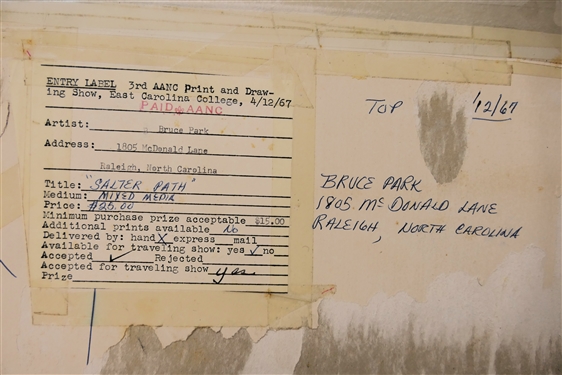 ENTRY LABEL 3rd AANC Print and Draw-
ing Show, East Carolina College, 4/12/67
PAID AANC
Artist: Bruce Park
Address: 1805 McDonald Lane
Raleigh, North Carolina
Title: "SALTER PATH"
Medium: MIXED MEDIA
Price: $25.00
Minimum purchase prize acceptable $15.00
Additional prints available No
Delivered by: hand X express mail
Available for traveling show: yes ✓ no
Accepted ✓ Rejected
Accepted for traveling show yes
Prize
TOP '12/67
BRUCE PARK
1805 McDONALD LANE
RALEIGH, NORTH CAROLINA